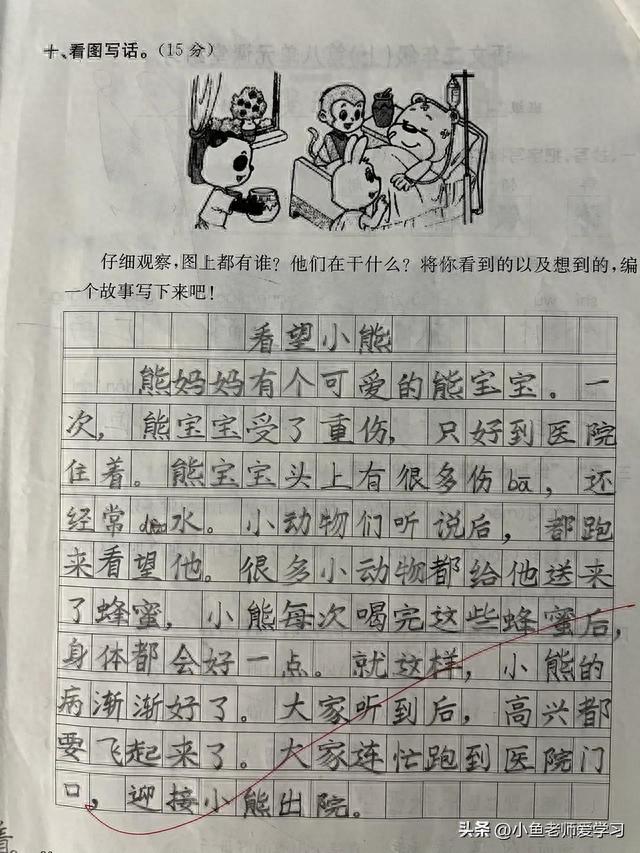 十、看图写话。(15分)
仔细观察,图上都有谁?他们在干什么?将你看到的以及想到的,编
一个故事写下来吧!
看望小熊
熊妈妈有个可爱的熊宝宝。一
次,熊宝宝受了重伤,只好到医院
住着。熊宝宝头上有很多伤bā,还
经常水。小动物们听说后,都跑
来看望他。很多小动物都给他送来
了蜂蜜,小熊每次喝完这些蜂蜜后,
身体都会好一点。就这样,小熊的
病渐渐好了。大家听到后,高兴都
要飞起来了。大家连忙跑到医院门
口,迎接小熊出院。
头条 @小鱼老师爱学习